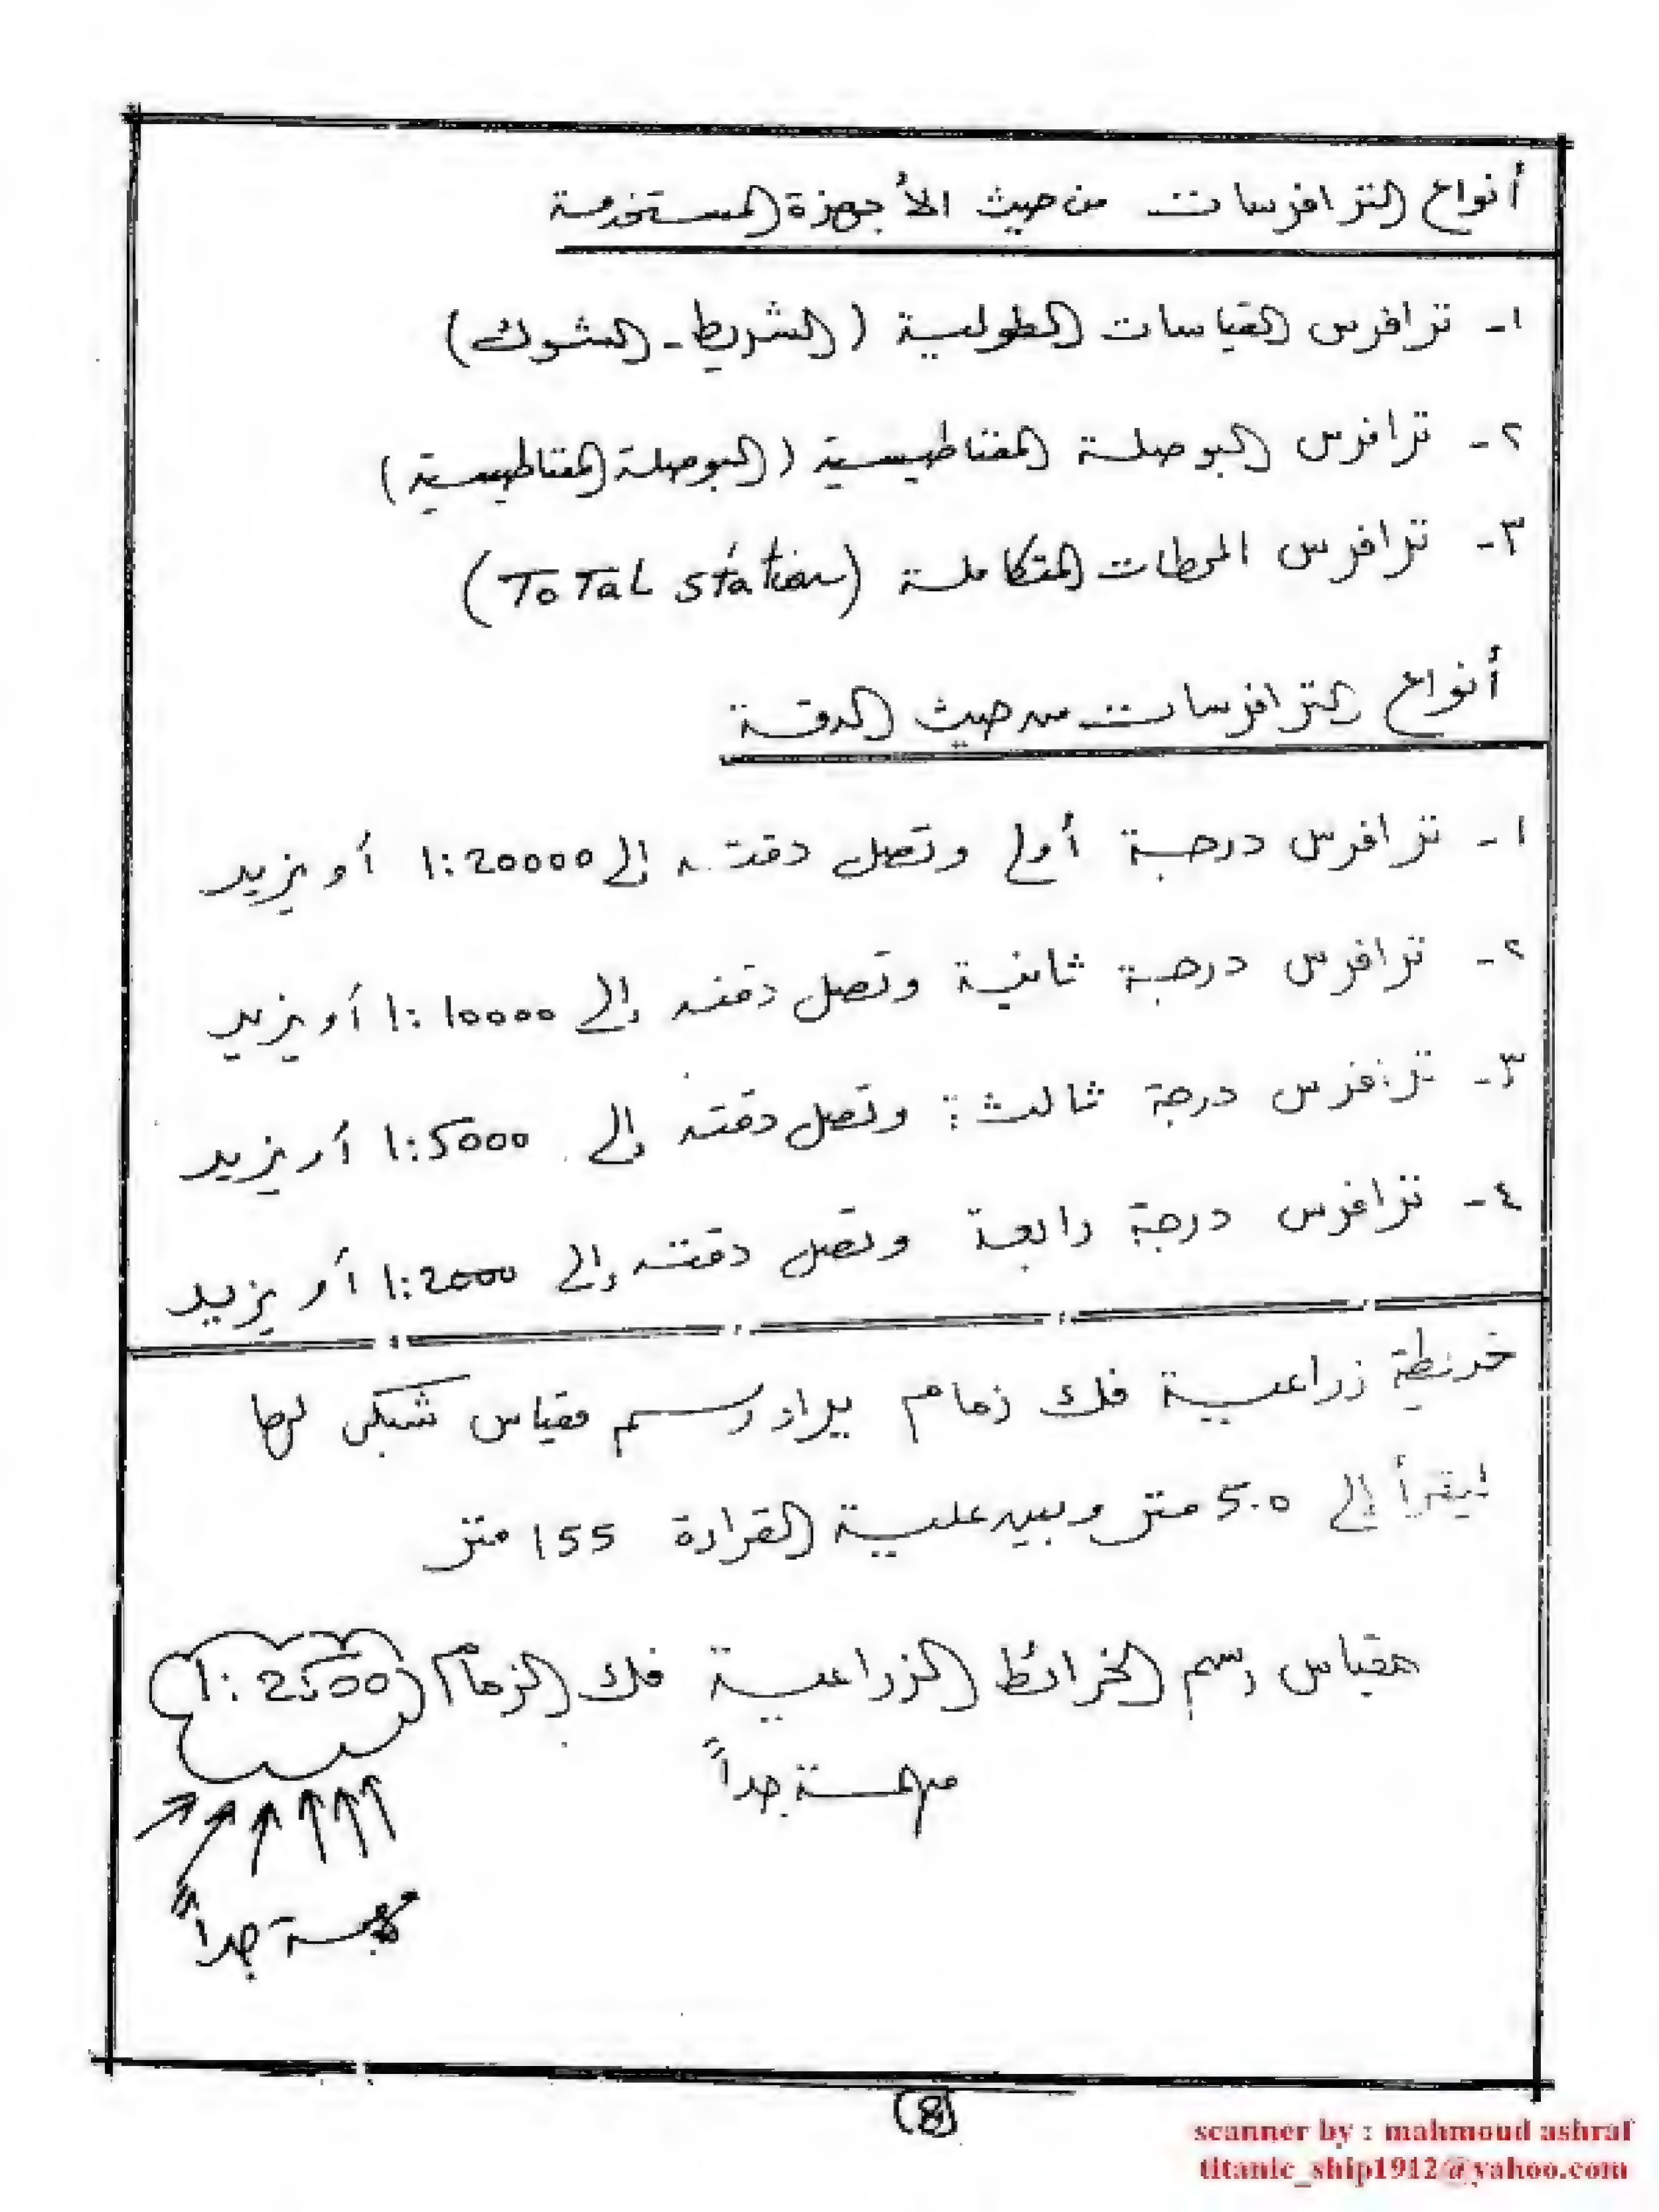 أنواع الترافرسات من حيث الأجهزة المستخدمة
١- ترافرس القياسات الطولية (الشريط - الشوك)
٢- ترافرس البوصلة المغناطيسية (البوصلة المغناطيسية)
٣- ترافرس المحطات المتكاملة (Total station)
أنواع الترافرسات من حيث الدقة
١- ترافرس درجة أولى وتصل دقته إلى 1:20000 أو يزيد
٢- ترافرس درجة ثانية وتصل دقته إلى 1:10000 أو يزيد
٣- ترافرس درجة ثالثة وتصل دقته إلى 1:5000 أو يزيد
٤- ترافرس درجة رابعة وتصل دقته إلى 1:2000 أو يزيد
خريطة زراعية فك زمام يراد رسم مقياس شبكى لها
ليقرأ إلى 5.0 متر وبين علية القراءة 155 متر
مقياس رسم الخرائط الزراعية فك الزمام 1:2500
مهمة جداً
مهمة جداً
(8)
scanner by : mahmoud ashraf
titanic_ship1912@yahoo.com